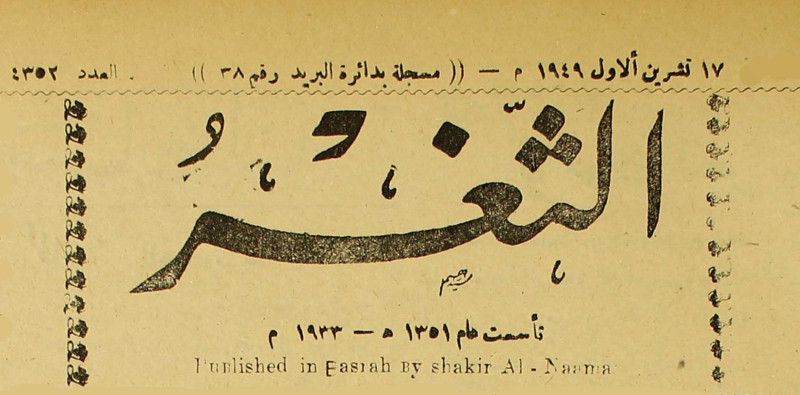 ١٧ تشرين ألاول ١٩٤٩ م — (( مسجلة بدائرة البريد رقم ٣٨ )) . العدد ٤٣٥٢
الثغر
تأسست عام ١٣٥١ ه — ١٩٣٣ م
Published in Basrah By shakir Al - Naama